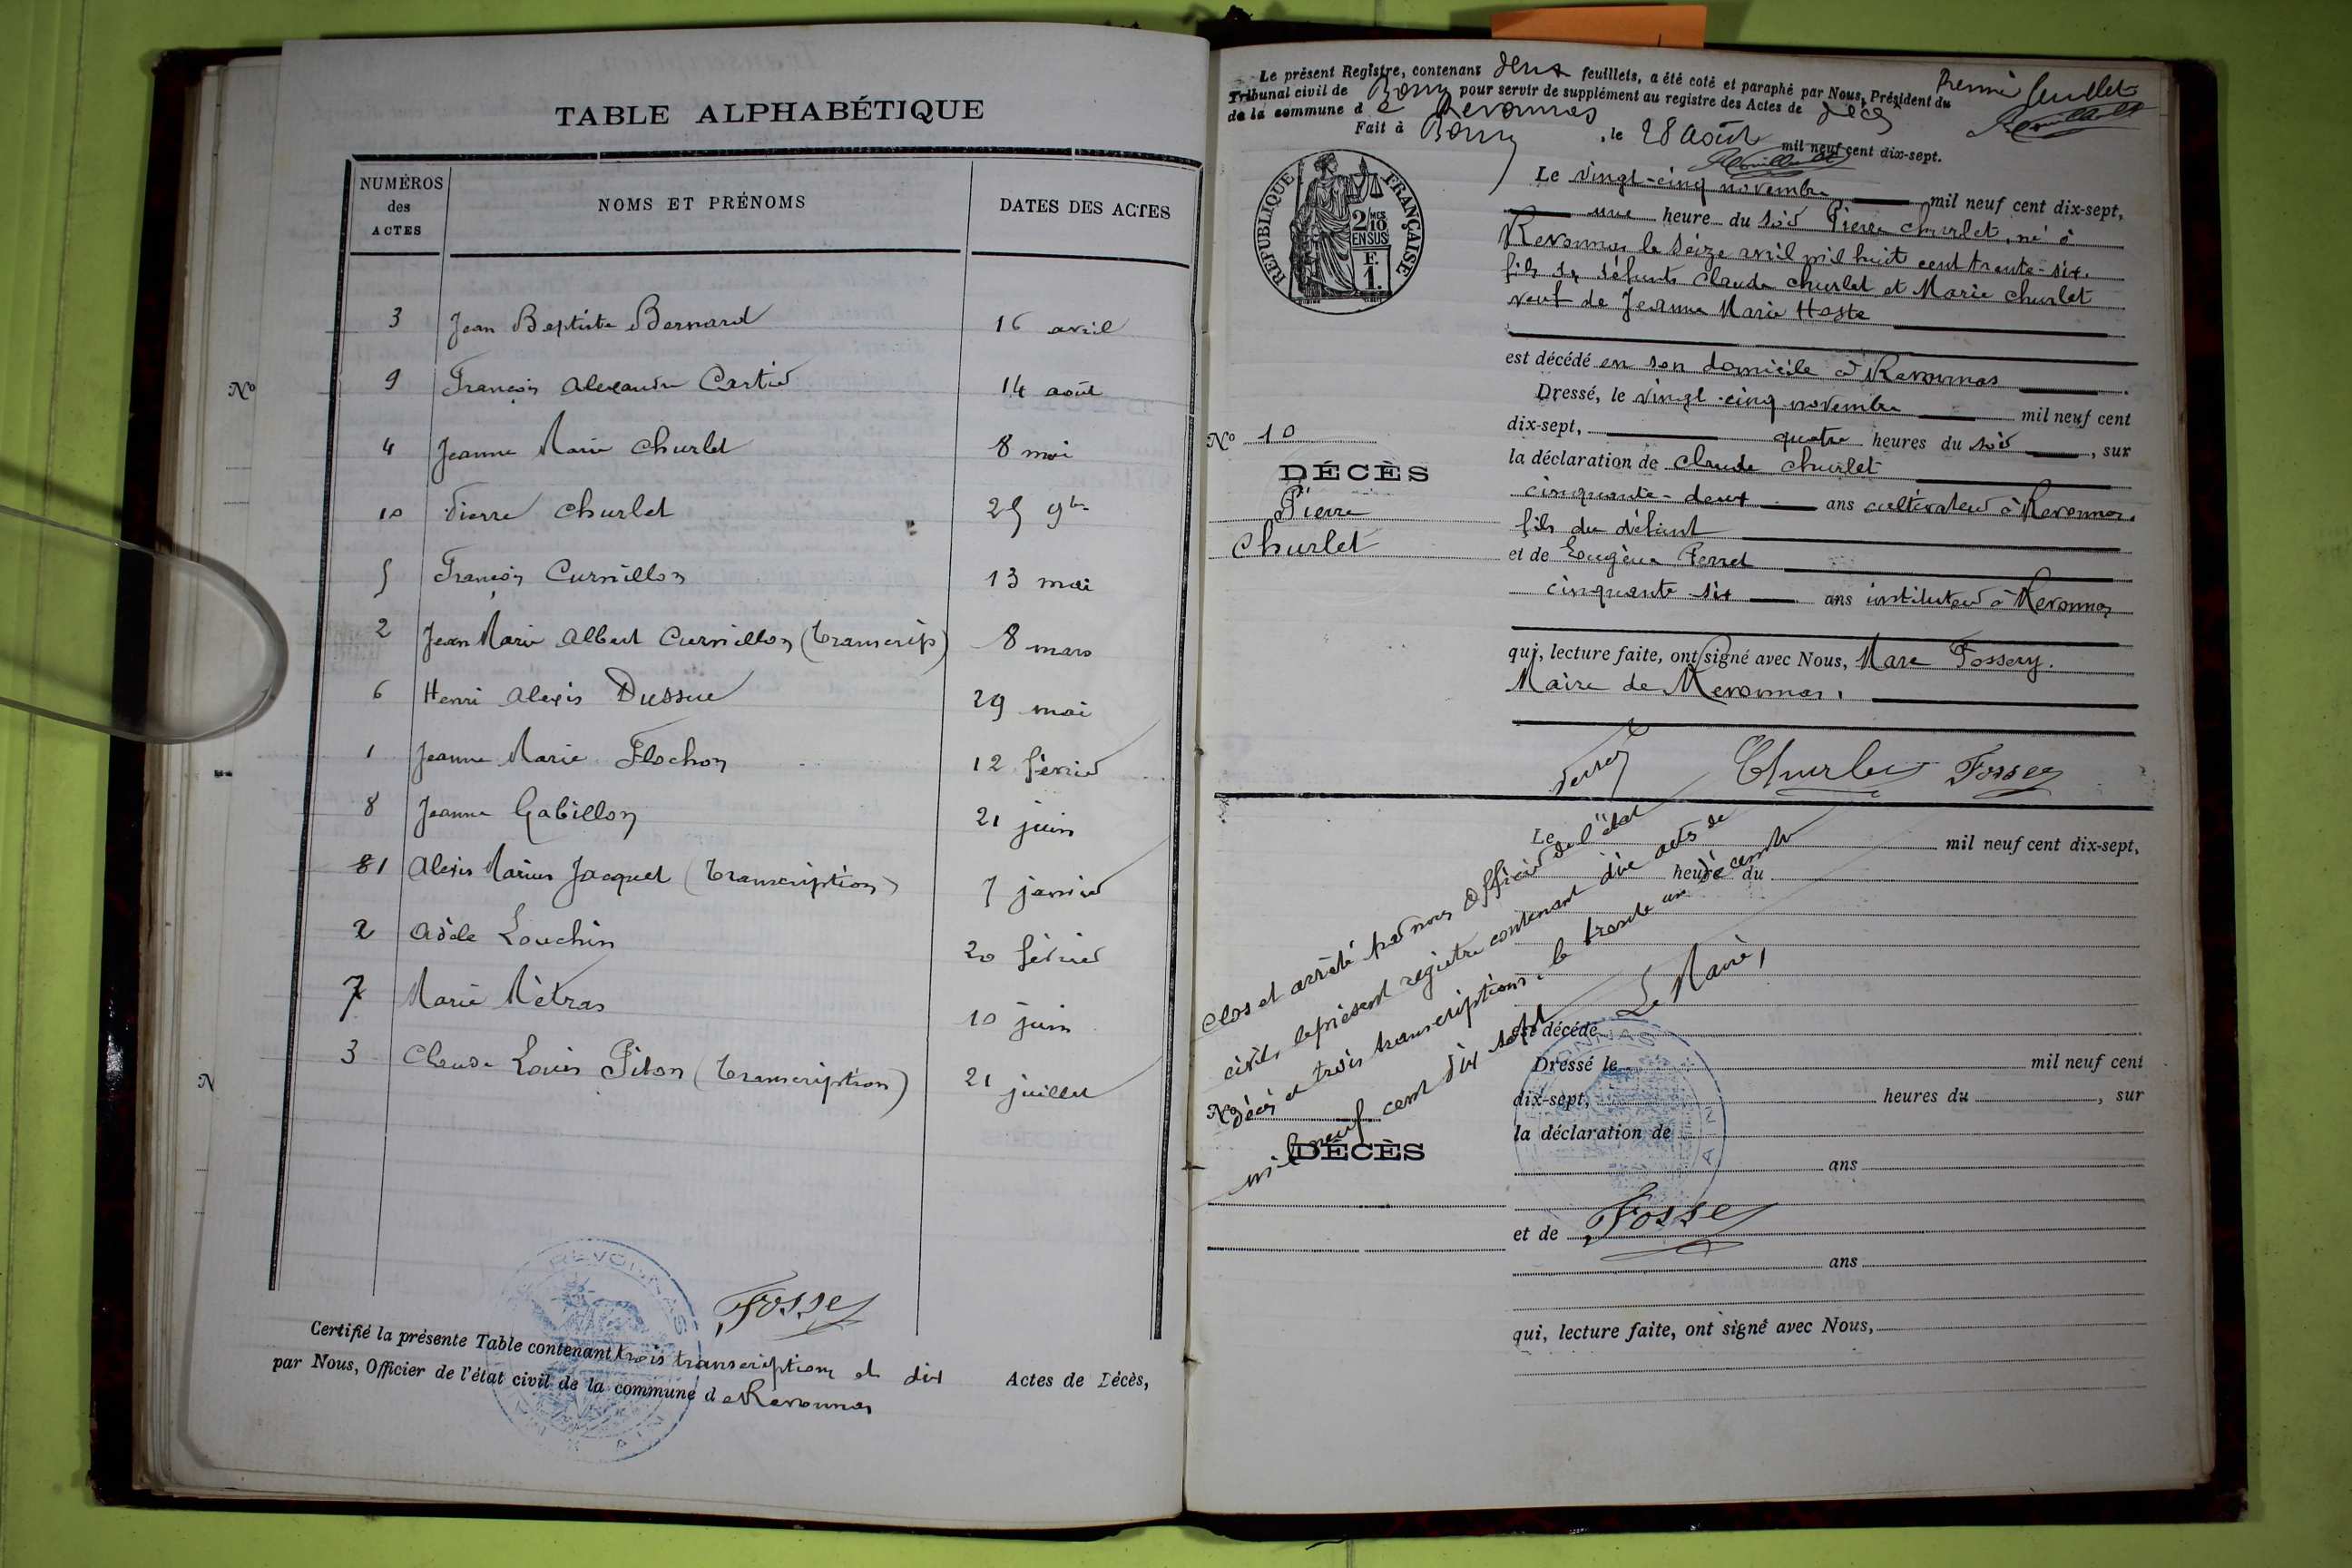 TABLE ALPHABÉTIQUE
NUMÉROS des ACTES
NOMS ET PRÉNOMS
DATES DES ACTES
3 Jean Baptiste Bernard 16 avril
9 François Alexandre Cartier 14 août
4 Jeanne Marie Churlet 8 mai
10 Pierre Churlet 25 9bre
5 François Curnillon 13 mai
2 Jean Marie Albert Curnillon (transcrip) 8 mars
6 Henri Alexis Dussue 29 mai
1 Jeanne Marie Flochon 12 février
8 Jeanne Gabillon 21 juin
1 Alexis Marius Jacquet (transcription) 7 janvier
2 Adèle Louchin 20 février
7 Marie Métras 10 juin
3 Claude Louis Piton (transcription) 21 juillet
Fossey
Certifié la présente Table contenant trois transcriptions et dix Actes de Décès,
par Nous, Officier de l'état civil de la commune de Revonnas
REVONNAS
AIN
Nº
N
Premier feuillet
Le présent Registre, contenant deux feuillets, a été coté et paraphé par Nous, Président du
Tribunal civil de Bourg pour servir de supplément au registre des Actes de décès
de la commune de Revonnas
Fait à Bourg, le 28 août mil neuf cent dix-sept.
RÉPUBLIQUE FRANÇAISE
2/10 MES
EN SUS
F.
1.
Le vingt-cinq novembre mil neuf cent dix-sept,
une heure du soir Pierre Churlet, né à
Revonnas le seize avril mil huit cent trente-six.
fils de défunts Claude Churlet et Marie Churlet
veuf de Jeanne Marie Hoste
est décédé en son domicile à Revonnas
Dressé, le vingt-cinq novembre mil neuf cent
dix-sept, quatre heures du soir, sur
la déclaration de Claude Churlet
cinquante-deux ans cultivateur à Revonnas.
fils du défunt
et de Eugène Perret
cinquante six ans instituteur à Revonnas
qui, lecture faite, ont signé avec Nous, Marc Fossey.
Maire de Revonnas.
Nº 10
DÉCÈS
Pierre
Churlet
Perret Churlet Fossey
Clos et arrêté par nous Officier de l'état
civil, le présent registre contenant dix actes de
décès et trois transcriptions, le trente un décembre
mil neuf cent dix sept
Le Maire,
Fossey
Le mil neuf cent dix-sept,
heure du
est décédé
Dressé le mil neuf cent
dix-sept, heures du , sur
la déclaration de
ans
et de
ans
qui, lecture faite, ont signé avec Nous,
Nº
DÉCÈS